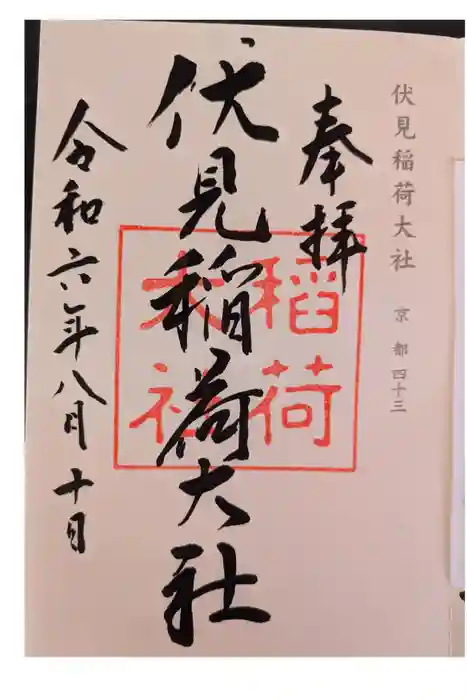 伏見稲荷大社 京都 四十三
奉拝
伏見稲荷大社
稲荷
大社
令和六年八月十日